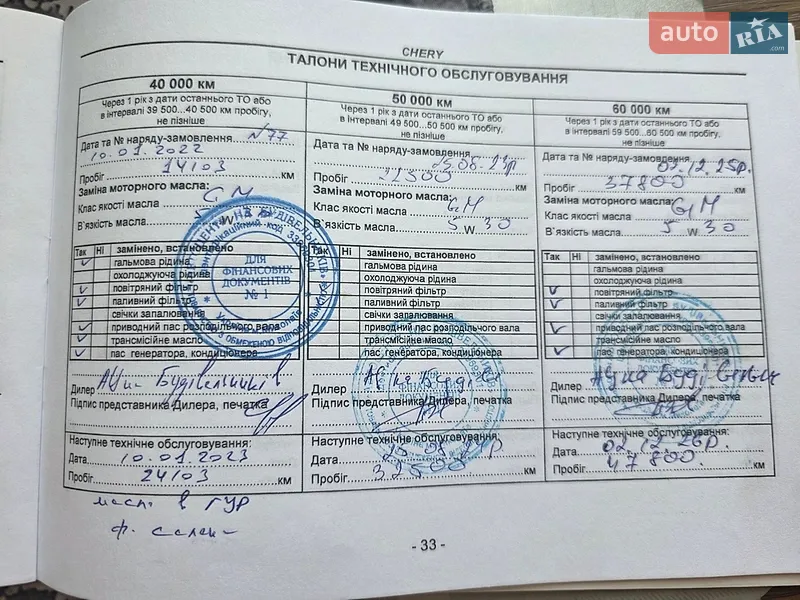 auto RIA .com
CHERY
ТАЛОНИ ТЕХНІЧНОГО ОБСЛУГОВУВАННЯ
40 000 км
Через 1 рік з дати останнього ТО або
в інтервалі 39 500...40 500 км пробігу,
не пізніше
Дата та № наряду-замовлення N77
10.01.2022
Пробіг 14103 км
Заміна моторного масла:
Клас якості масла GM
В`язкість масла W
Так Ні замінено, встановлено
гальмова рідина
охолоджуюча рідина
повітряний фільтр
паливний фільтр
свічки запалювання
приводний пас розподільчого вала
трансмісійне масло
пас генератора, кондиціонера
Дилер
Підпис представника Дилера, печатка
Наступне технічне обслуговування:
Дата 10.01.2023
Пробіг 24103 км
50 000 км
Через 1 рік з дати останнього ТО або
в інтервалі 49 500...50 500 км пробігу,
не пізніше
Дата та № наряду-замовлення
Пробіг км
Заміна моторного масла:
Клас якості масла GM
В`язкість масла 5 W 30
Так Ні замінено, встановлено
гальмова рідина
охолоджуюча рідина
повітряний фільтр
паливний фільтр
свічки запалювання
приводний пас розподільчого вала
трансмісійне масло
пас генератора, кондиціонера
Дилер
Підпис представника Дилера, печатка
Наступне технічне обслуговування:
Дата
Пробіг км
60 000 км
Через 1 рік з дати останнього ТО або
в інтервалі 59 500...60 500 км пробігу,
не пізніше
Дата та № наряду-замовлення
02.12.25р.
Пробіг 37800 км
Заміна моторного масла:
Клас якості масла GM
В`язкість масла 5 W 30
Так Ні замінено, встановлено
гальмова рідина
охолоджуюча рідина
повітряний фільтр
паливний фільтр
свічки запалювання
приводний пас розподільчого вала
трансмісійне масло
пас генератора, кондиціонера
Дилер
Підпис представника Дилера, печатка
Наступне технічне обслуговування:
Дата 02.12.26р.
Пробіг 47800 км
ДЛЯ
ФІНАНСОВИХ
ДОКУМЕНТІВ
№ 1
масл. в ГУР
ф. салон
- 33 -